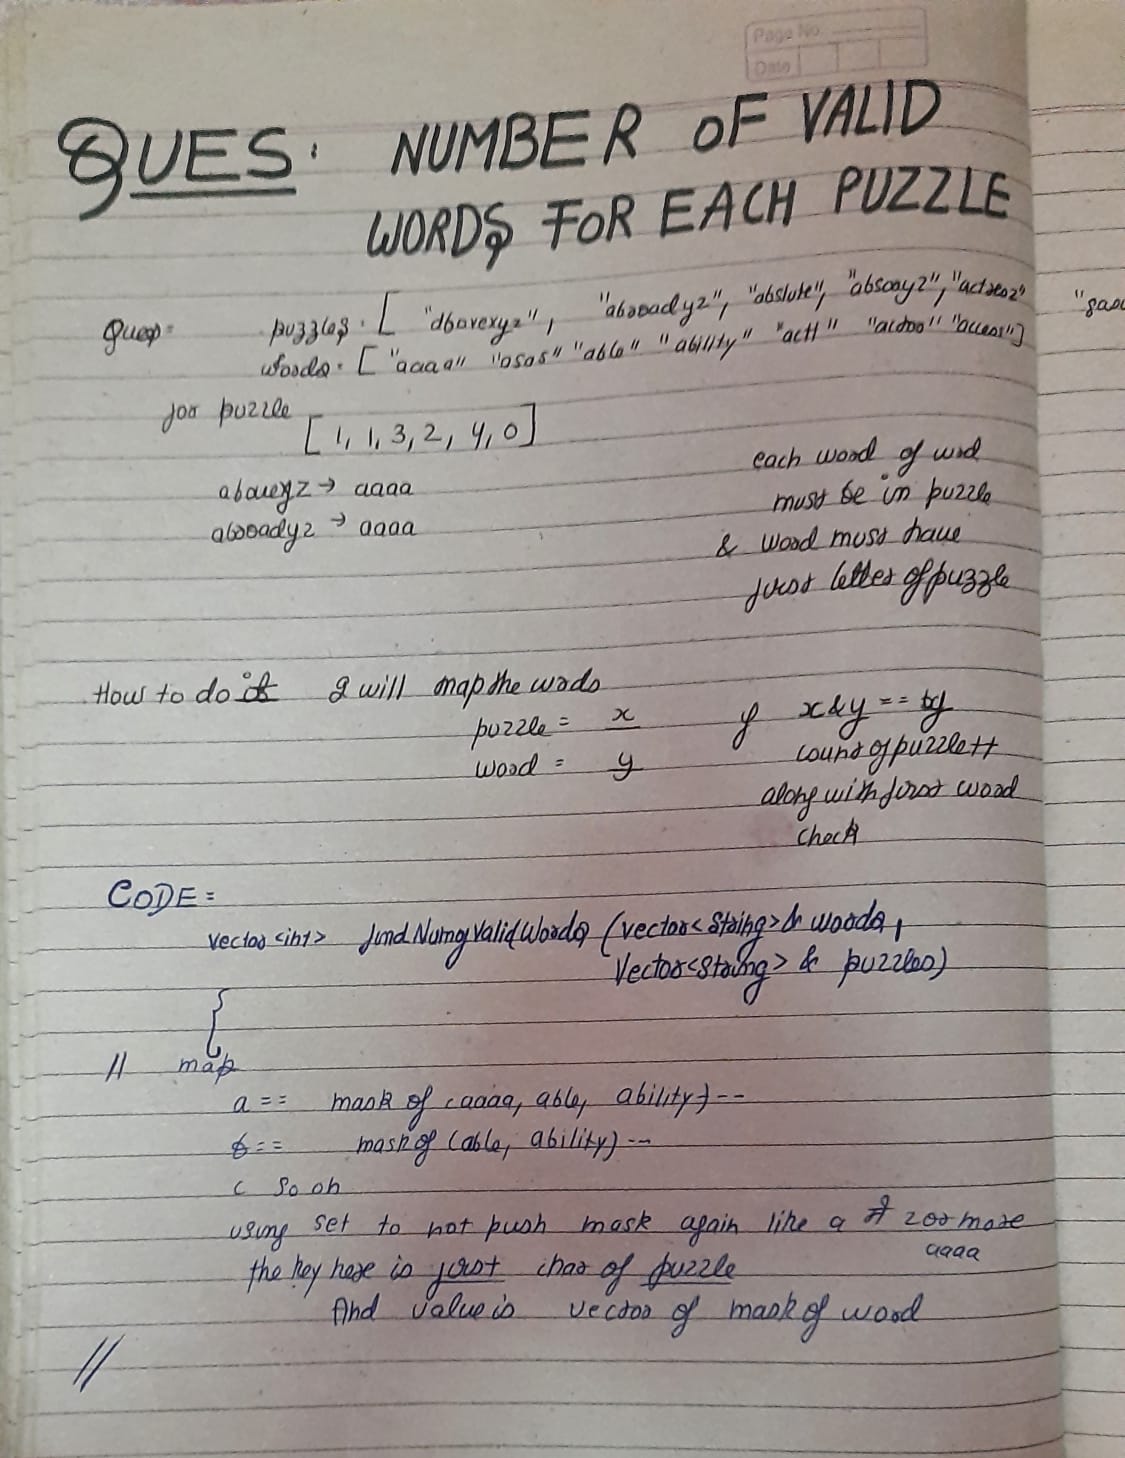 Page No.
Date
QUES: NUMBER OF VALID
WORDS FOR EACH PUZZLE
Ques= puzzles = [ "abovexyz", "abroadyz", "abslute", "absoryz", "actresz" "gasw
words = [ "aaaa" "asas" "able" "ability" "actt" "actor" "access"]
for puzzle
[ 1, 1, 3, 2, 4, 0]
each word of wrd
abovexyz → aaaa
must be in puzzle
abroadyz → aaaa
& word must have
first letter of puzzle
How to do it I will map the wrds
puzzle = x if x&y == y
word = y count of puzzle++
along with first word
check
CODE =
vector<int> findNumOfValidWords (vector<string>& words,
vector<string> & puzzles)
{
// map
a == mask of (aaaa, able, ability) --
b == mask of (able, ability) --
c so on
using set to not push mask again like a if 2 or more
aaaa
the key here is first char of puzzle
And value is vector of mask of word
//